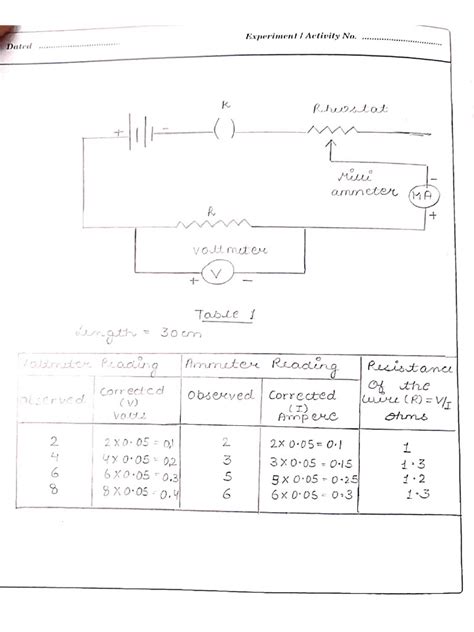 Experiment / Activity No. ..............................
Dated ..............................
K
Rheostat
+ -
Milli
ammeter
-
MA
+
R
voltmeter
+ V -
Table 1
Length = 30cm
Voltmeter Reading Ammeter Reading Resistance
Of the
wire (R) = V/I
ohms
Observed Corrected (V) Volts Observed Corrected (I) Ampere
2 2×0.05=0.1 2 2×0.05=0.1 1
4 4×0.05=0.2 3 3×0.05=0.15 1.3
6 6×0.05=0.3 5 5×0.05=0.25 1.2
8 8×0.05=0.4 6 6×0.05=0.3 1.3